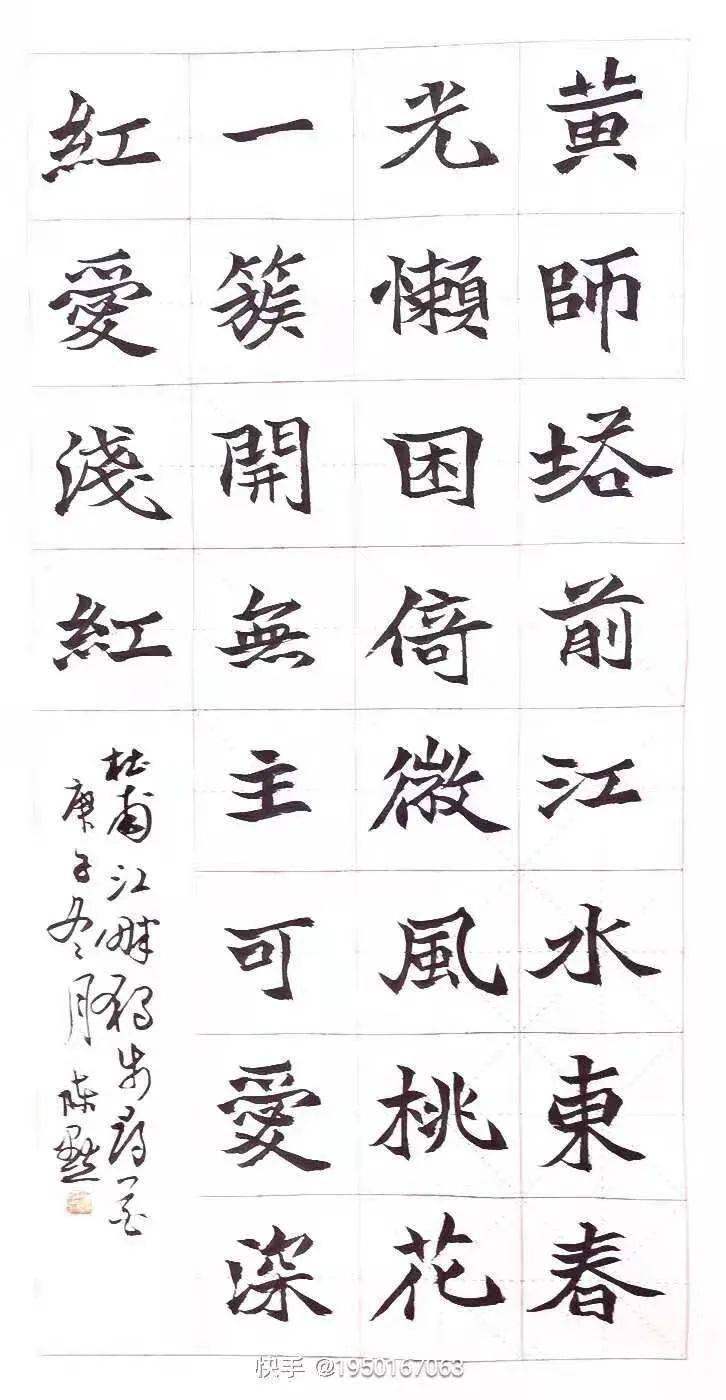 黃師塔前江水東春
光懶困倚微風桃花
一簇開無主可愛深
紅愛淺紅
杜甫江畔獨步尋花
庚子冬月 陳默
快手 @1950167063